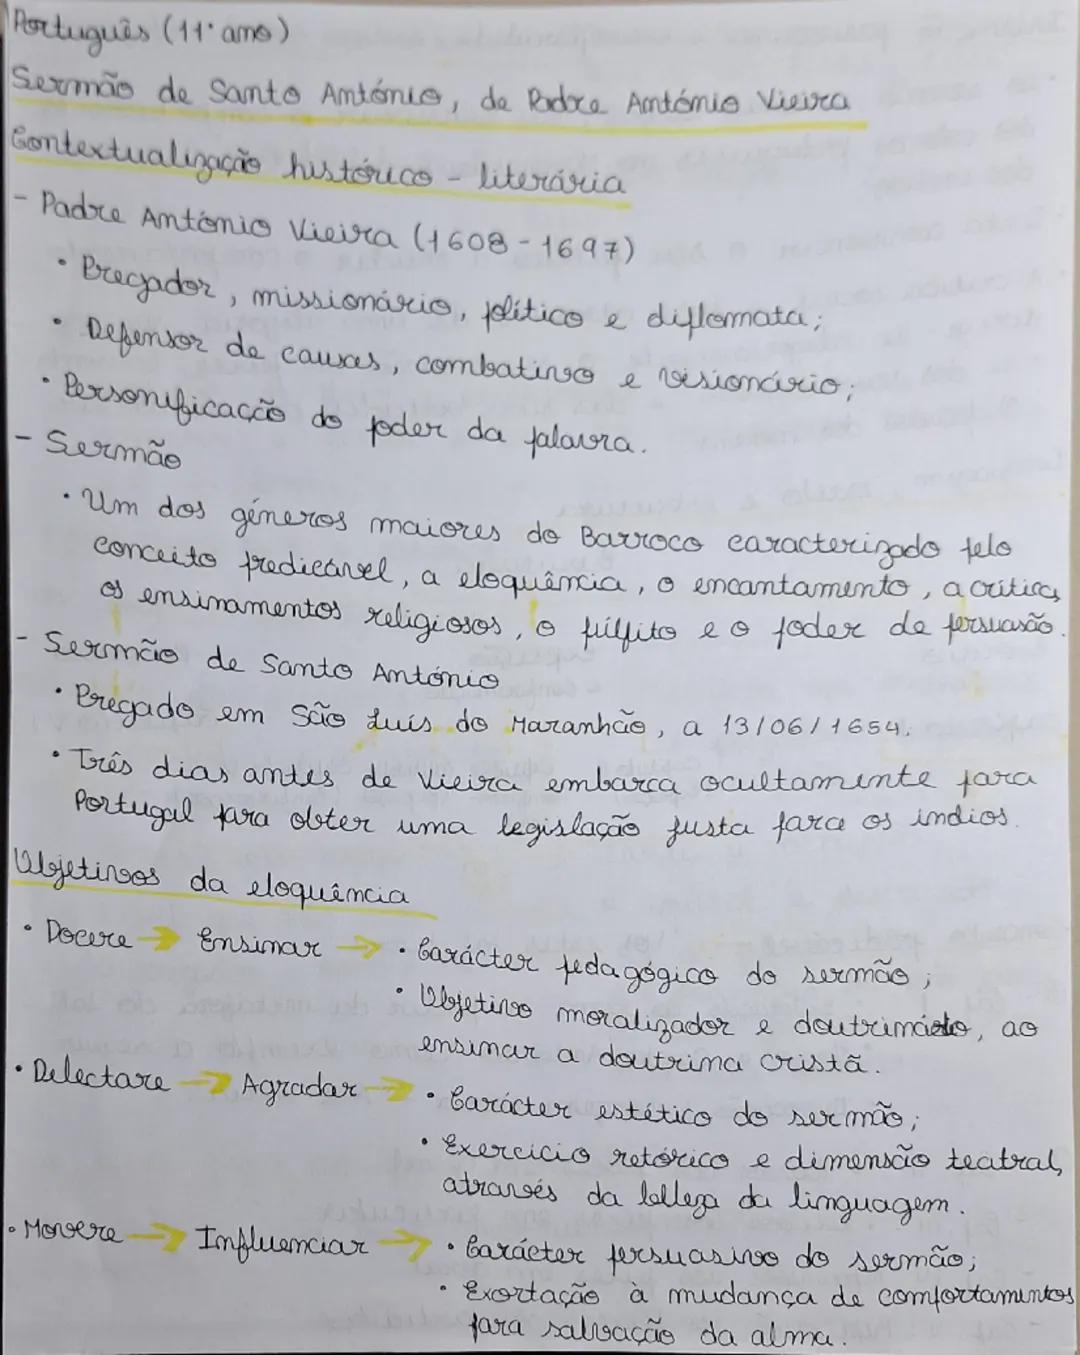 Português (11º ano)
Sermão de Santo António, de Padre António Vieira
Contextualização histórico - literária
- Padre António Vieira (1608 - 1697)
• Pregador, missionário, político e diplomata;
• Defensor de causas, combativo e visionário;
• Personificação do poder da palavra.
- Sermão
• Um dos géneros maiores do Barroco caracterizado pelo
conceito predicável, a eloquência, o encantamento, a crítica,
os ensinamentos religiosos, o púlpito e o poder de persuasão.
- Sermão de Santo António
• Pregado em São Luís do Maranhão, a 13/06/1654.
• Três dias antes de Vieira embarca ocultamente para
Portugal para obter uma legislação justa para os índios.
Objetivos da eloquência
• Docere → Ensinar → • Carácter pedagógico do sermão;
• Objetivo moralizador e doutrinário, ao
ensinar a doutrina cristã.
• Delectare → Agradar → • Carácter estético do sermão;
• Exercício retórico e dimensão teatral,
através da beleza da linguagem.
• Movere → Influenciar → • Carácter persuasivo do sermão;
• Exortação à mudança de comportamentos
para salvação da alma.